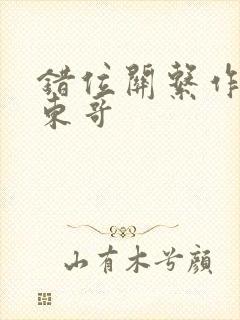 錯位關繫作
東哥
山有木兮顏